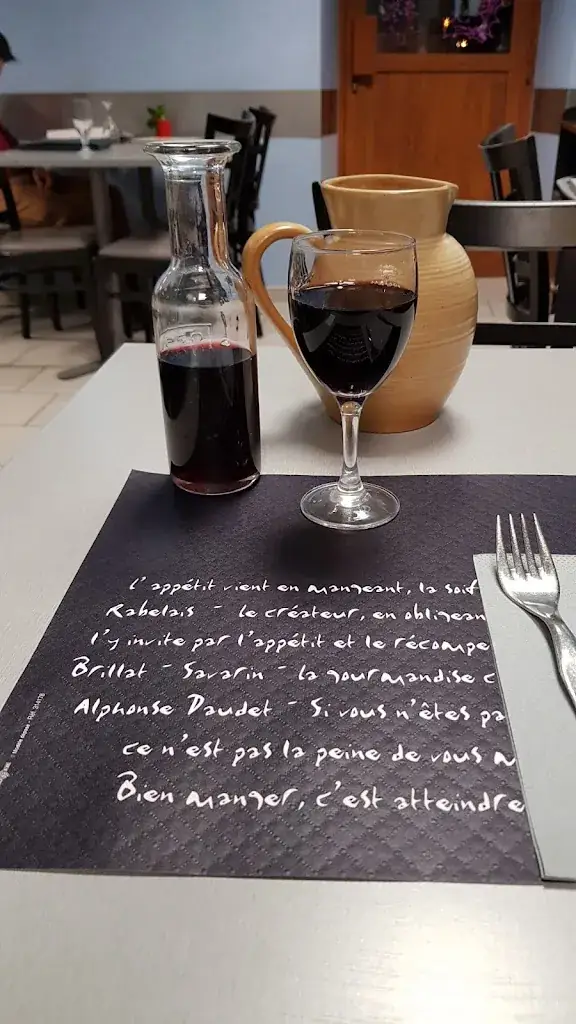 L'appétit vient en mangeant, la soif
Rabelais - le créateur, en obligean
l'y invite par l'appétit et le récompe
Brillat - Savarin - la gourmandise c
Alphonse Daudet - Si vous n'êtes pa
ce n'est pas la peine de vous m
Bien manger, c'est atteindre